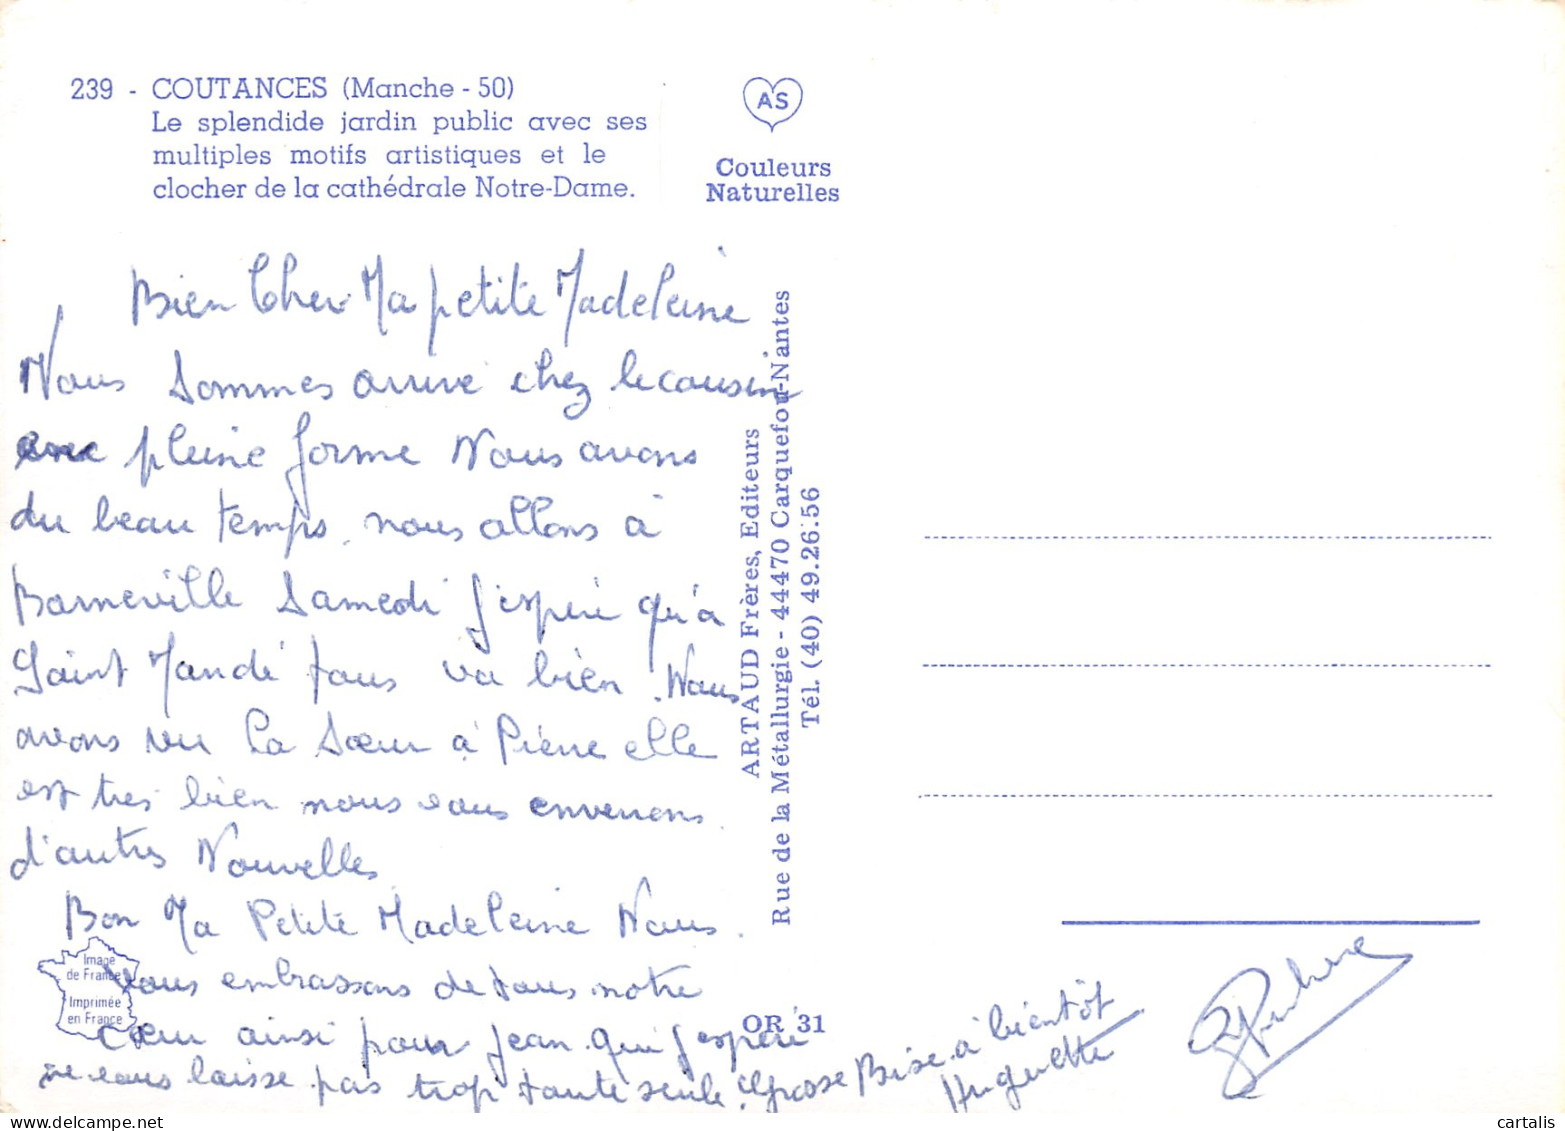 239 - COUTANCES (Manche - 50)
Le splendide jardin public avec ses
multiples motifs artistiques et le
clocher de la cathédrale Notre-Dame.
AS
Couleurs
Naturelles
Bien Cher Ma petite Madeleine
Nous Sommes arrive chez le cousin
pleine forme Nous avons
du beau temps. nous allons à
Barneville Samedi j'espère qu'a
Saint Mandé tous va bien. Nous
avons vu la Sœur à Pierre elle
est très bien nous vous enverrons
d'autres Nouvelles
Bon Ma Petite Madeleine Nous
vous embrassons de tous notre
cœur ainsi pour Jean qui j'espère
ne vous laisse pas trop toute seule. Grosse Bise à bientôt
Huguette
ARTAUD Frères, Editeurs
Rue de la Métallurgie - 44470 Carquefou-Nantes
Tél. (40) 49.26.56
Image
de France
Imprimée
en France
OR 31
cartalis